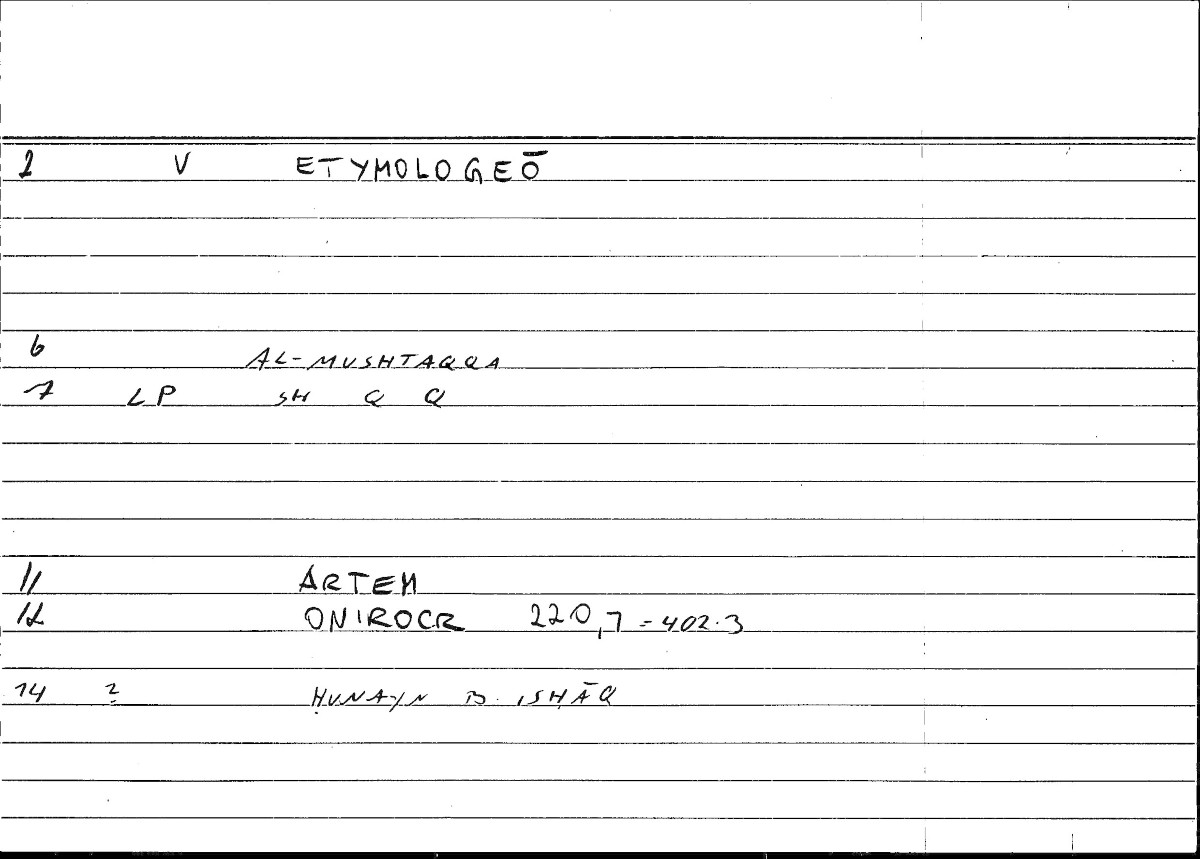 2 V ETYMOLOGEŌ
6 AL-MUSHTAQQA
7 LP SH Q Q
11 ARTEM
12 ONIROCR 220,7 = 402.3
14 ? ḤUNAYN B. ISḤĀQ